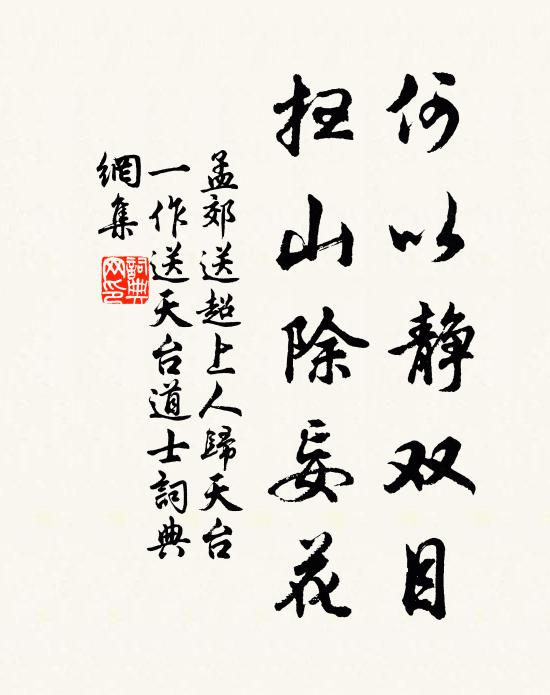 何以静双目
扫山除妄花
孟郊送超上人歸天台
一作送天台道士詞典
網集
詞典網印